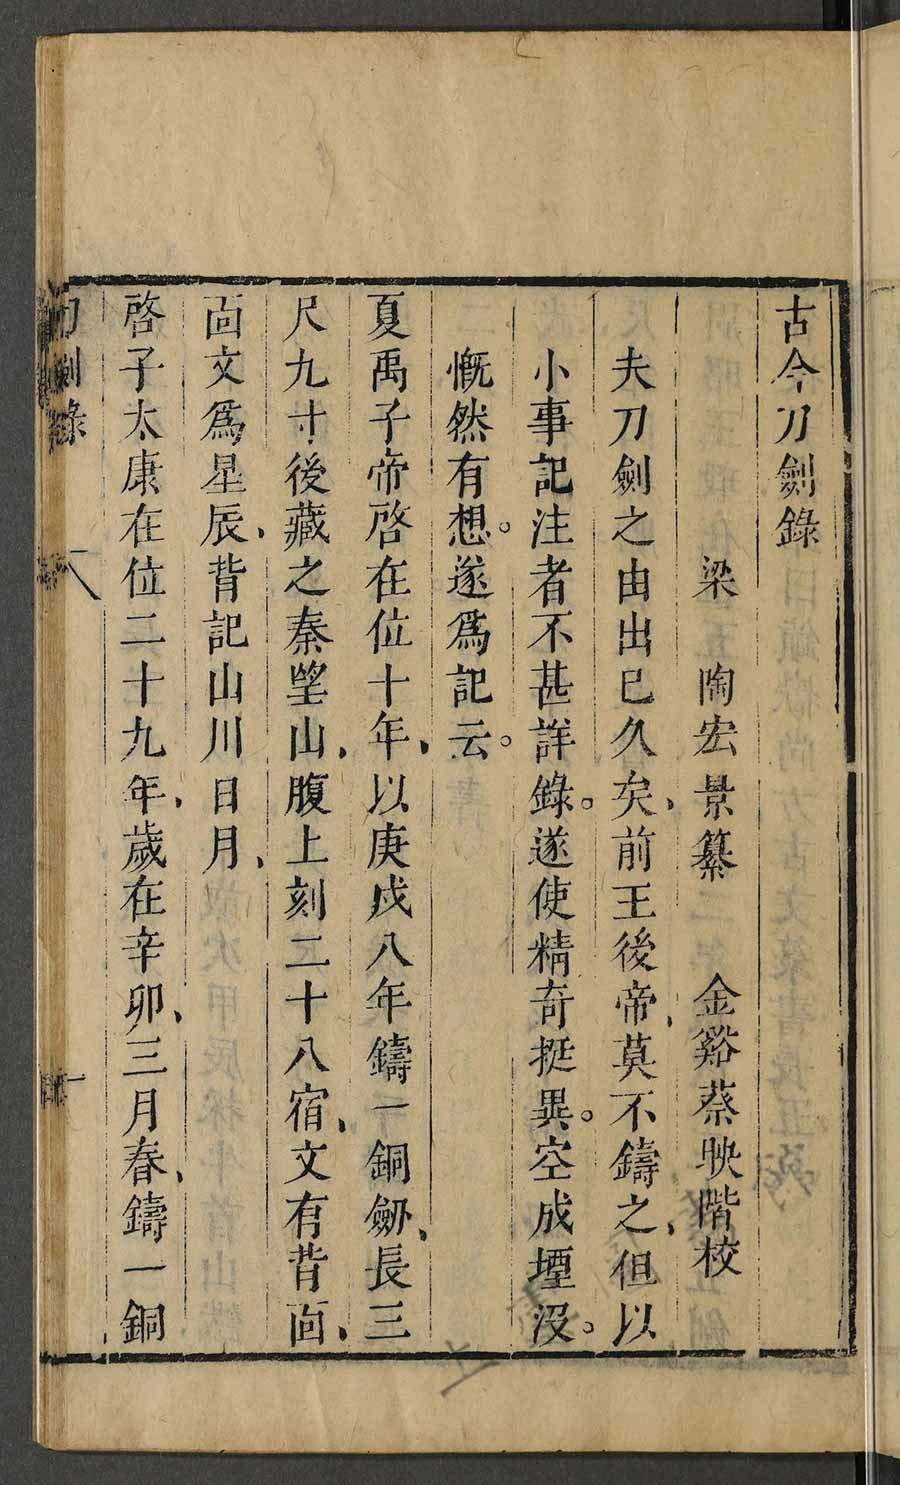 古今刀劍錄
梁　陶宏景纂　金谿蔡映階校
夫刀劍之由出已久矣、前王後帝、莫不鑄之、但以
小事記注者不甚詳錄。遂使精奇挺異。空成堙沒。
慨然有想。遂爲記云。
夏禹子帝啓在位十年、以庚戌八年鑄一銅劒、長三
尺九寸、後藏之秦望山、腹上刻二十八宿、文有背靣、
靣文爲星辰、背記山川日月、
啓子太康在位二十九年、歲在辛卯、三月春、鑄一銅
刀劍錄　八